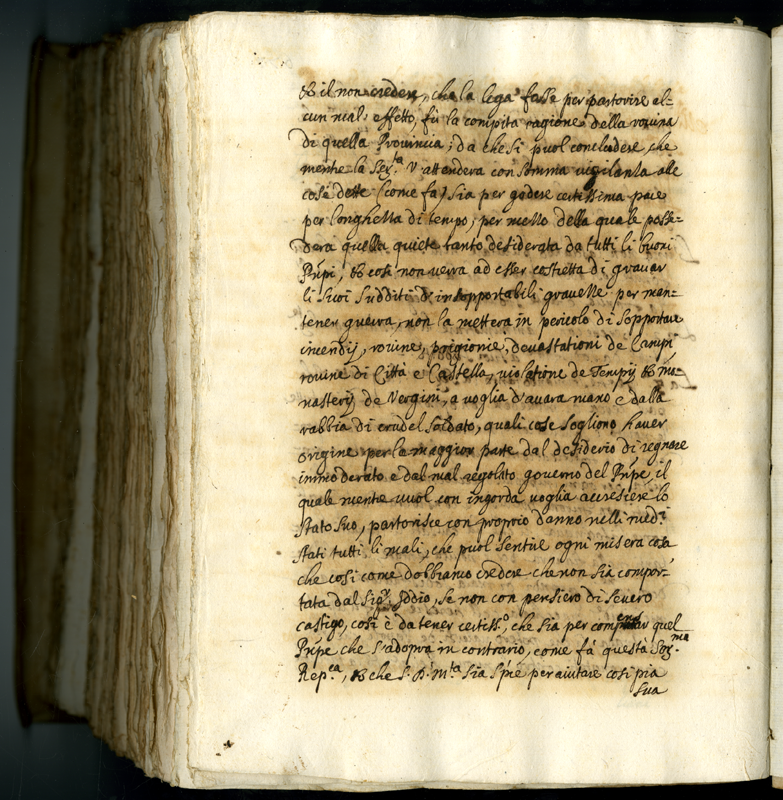 & il non creder, che la lega fosse per partorire al=
cun mal' effetto, fù la compita cagione della rovina
di quella Provincia; da che si puol concludere, che
mentre la Ser.ta V attenderà con somma vigilanza alle
cose dette (come fa) sia per godere certissima pace
per longhezza di tempo; per mezzo della quale posse=
derà quella quiete tanto desiderata da tutti li buoni
Prńpi, & così non verrà ad esser costretta di gravar
li suoi sudditi d'insopportabili gravezze per man=
tener guerra, non la metterà in pericolo di sopportare
incendij, rovine, prigionie, devastationi de Campi
rovine di Città e Castella, violatione de Tempij & mo=
nasterij de Vergini, a voglia d'avara mano e dalla
rabbia di crudel soldato, quali cose sogliono haver
origine per la maggior parte dal desiderio di regnare
immoderato e dal mal regolato governo del Prńpe, il
quale mentre vuol con ingorda voglia accresiere lo
stato suo, partorisce con proprio danno nelli med.i
stati tutti li mali, che puol sentire ogni misera cosa
che così come dobbiamo credere che non sia compor=
tata dal Sig.r Iddio, se non con pensiero di severo
castigo, così è da tener certiss.o che sia per quel
Prńpe che s'adopra in contrario, come fà questa Ser.ma
Rep.ca, & che S. D. M.tà sia per aiutare così pia
sua